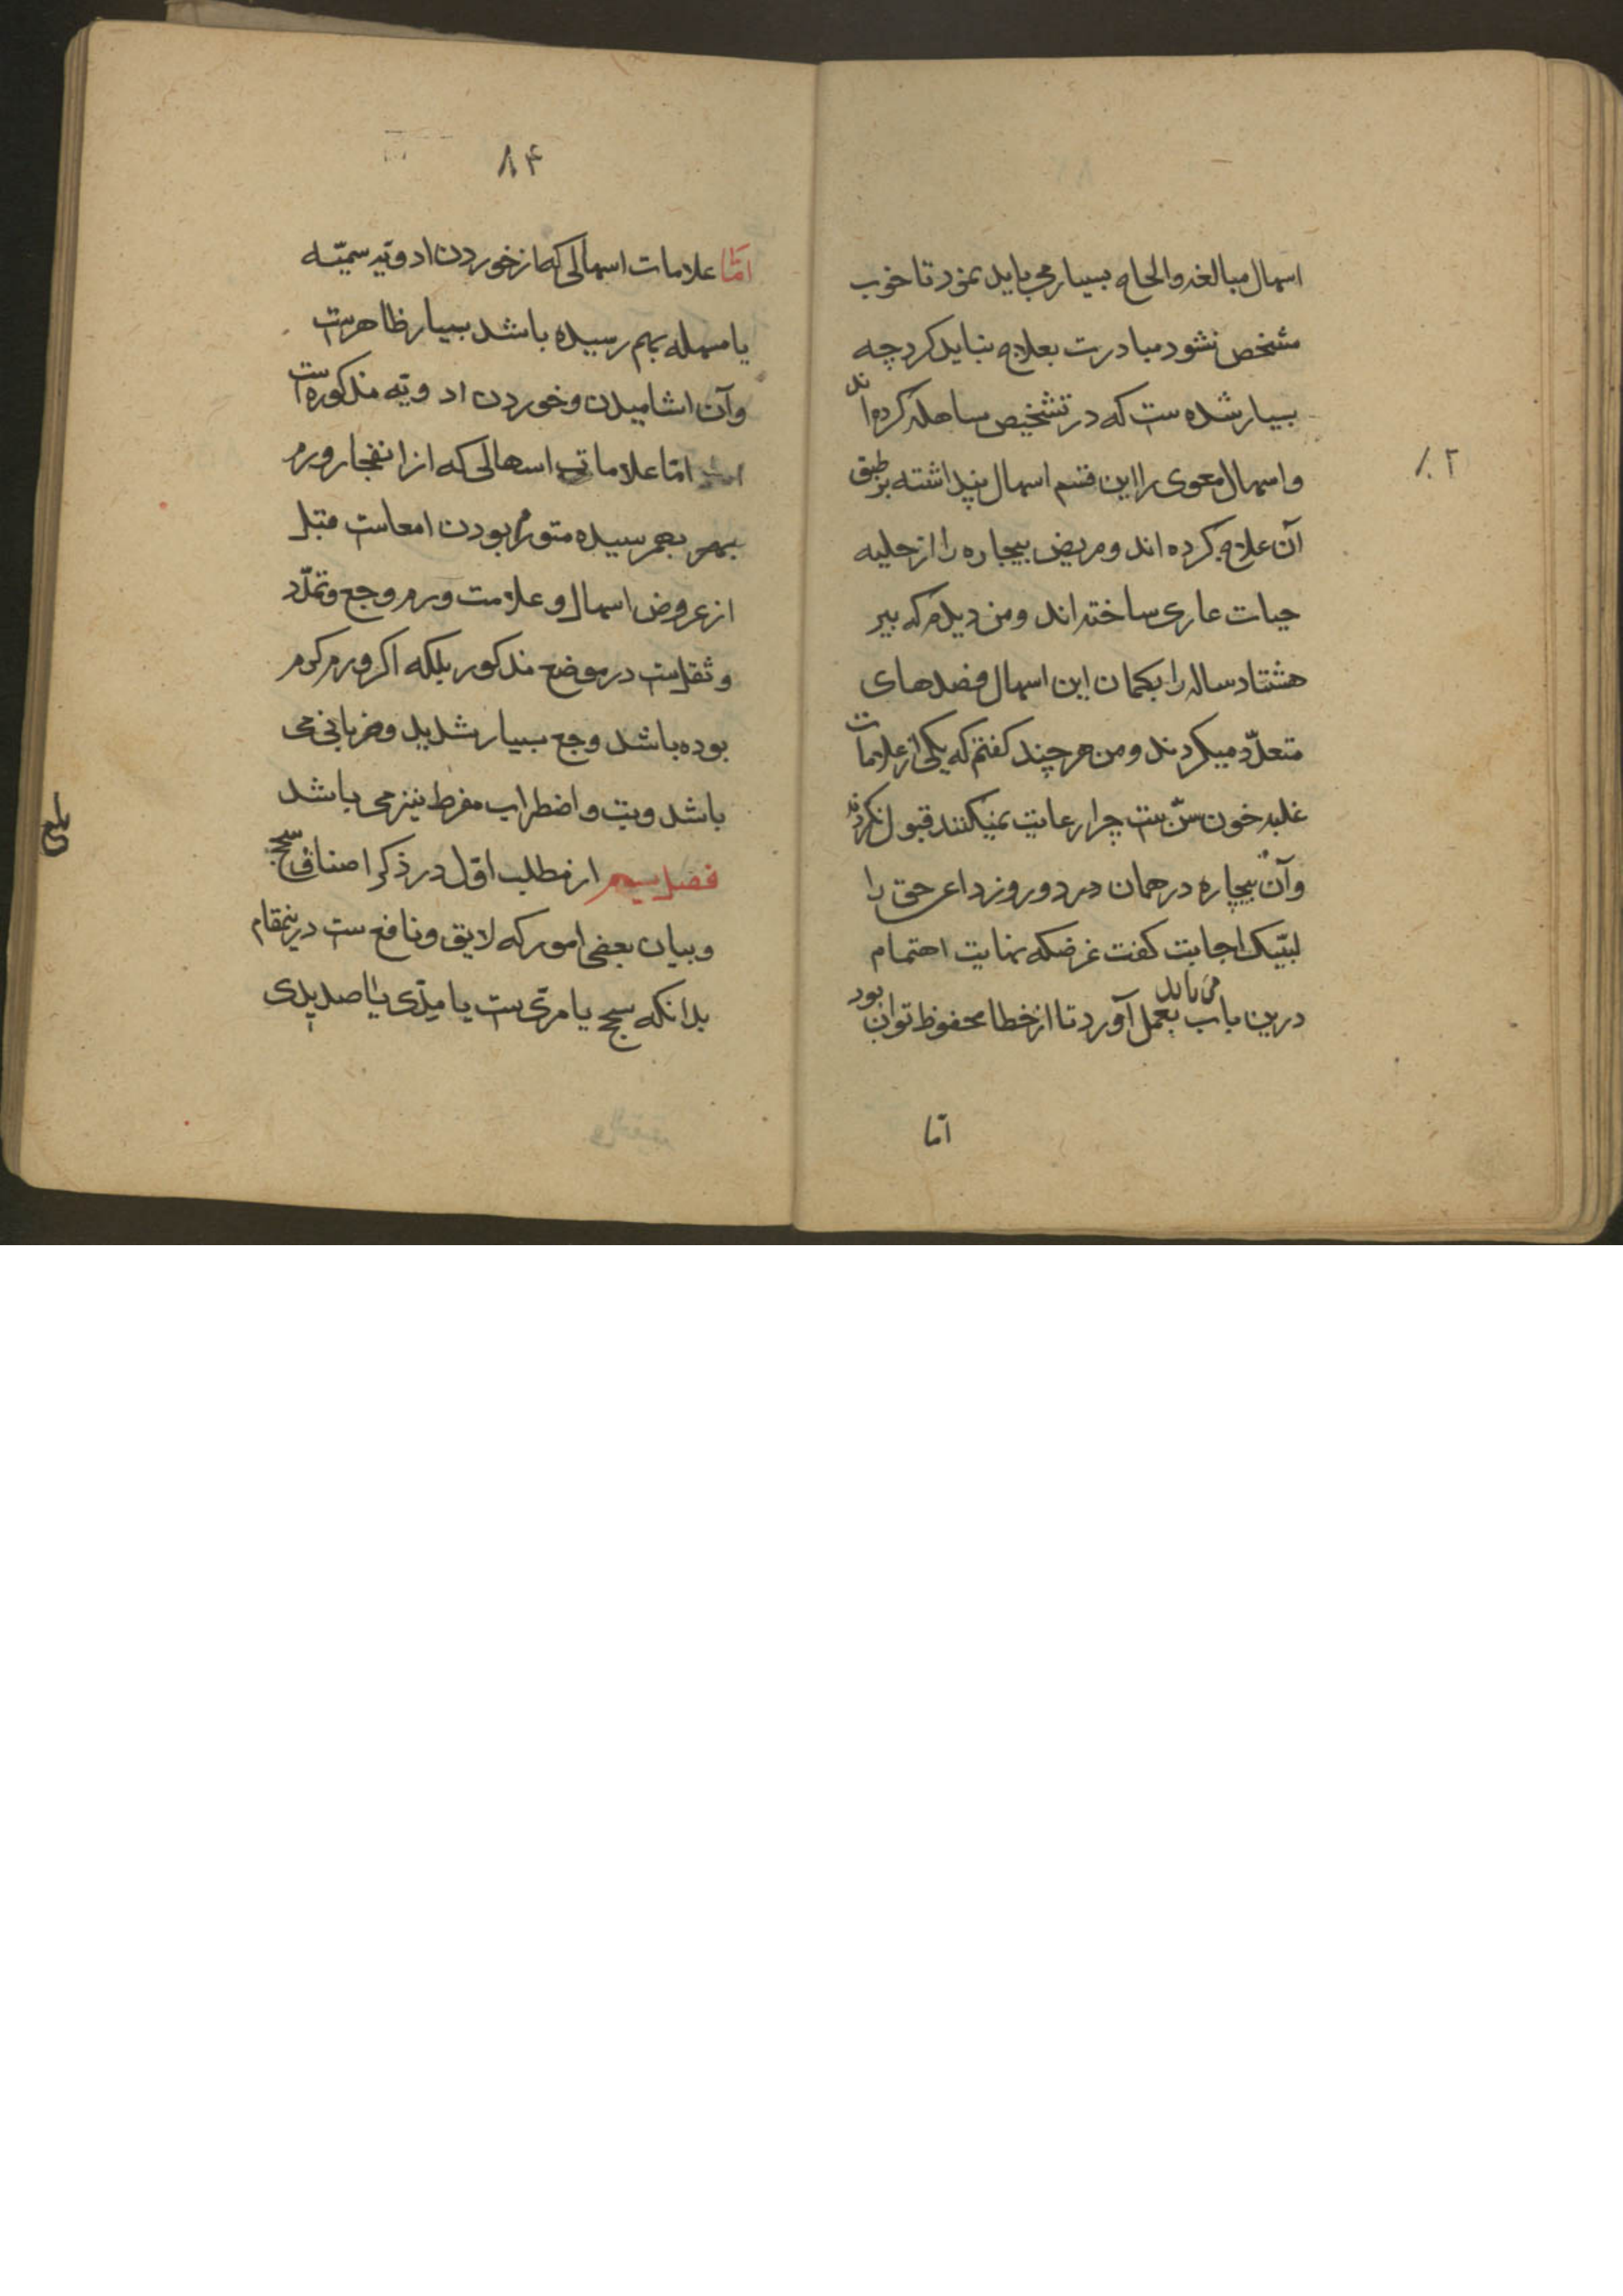 اسهال مبالغه والحاح بسیار می باید نمود تا خوب
مشخص نشود مبادرت بعلاج نباید کرد چه
بسیار شده ست که در تشخیص مساهله کرده اند
و اسهال معوی را این قسم اسهال پنداشته بر طبق
آن علاج کرده اند و مریض بیچاره را از حلیه
حیات عاری ساخته اند و من دیدم که پیر
هشتاد ساله را بکمان این اسهال فصدهای
متعدّد میکردند و من هر چند کفتم که یکی از علامات
غلبه خون سنّ ست چرا رعایت نمیکنند قبول نکردند
و آن بیچاره در همان در دو روز داعی حق را
لبّیک اجابت کفت غرضکه نهایت اهتمام
درین باب بعمل می باید آورد تا از خطا محفوظ توان بود
امّا
۸۴
امّا علامات اسهالی که از خوردن ادویه سمیّه
یا مسهله بهم رسیده باشد بسیار ظاهرست
و آن اشامیدن و خوردن ادویه مذکوره است
امّا علامات اسهالی که از انفجار ورم
بهم رسیده متورم بودن امعاست قبل
از عروض اسهال و علامت ورم وجع و تمدّد
و ثقلست در موضع مذکور بلکه اکر ورم کرم
بوده باشد وجع بسیار شدید و ضربانی می
باشد و تب و اضطراب مفرط نیز می باشد
فصل سیم از مطلب اوّل در ذکر اصناف سحج
و بیان بعضی امور که لایق و نافع ست درینمقام
بدانکه سحج یا مرّی ست یا مِدّی یا صدیدی